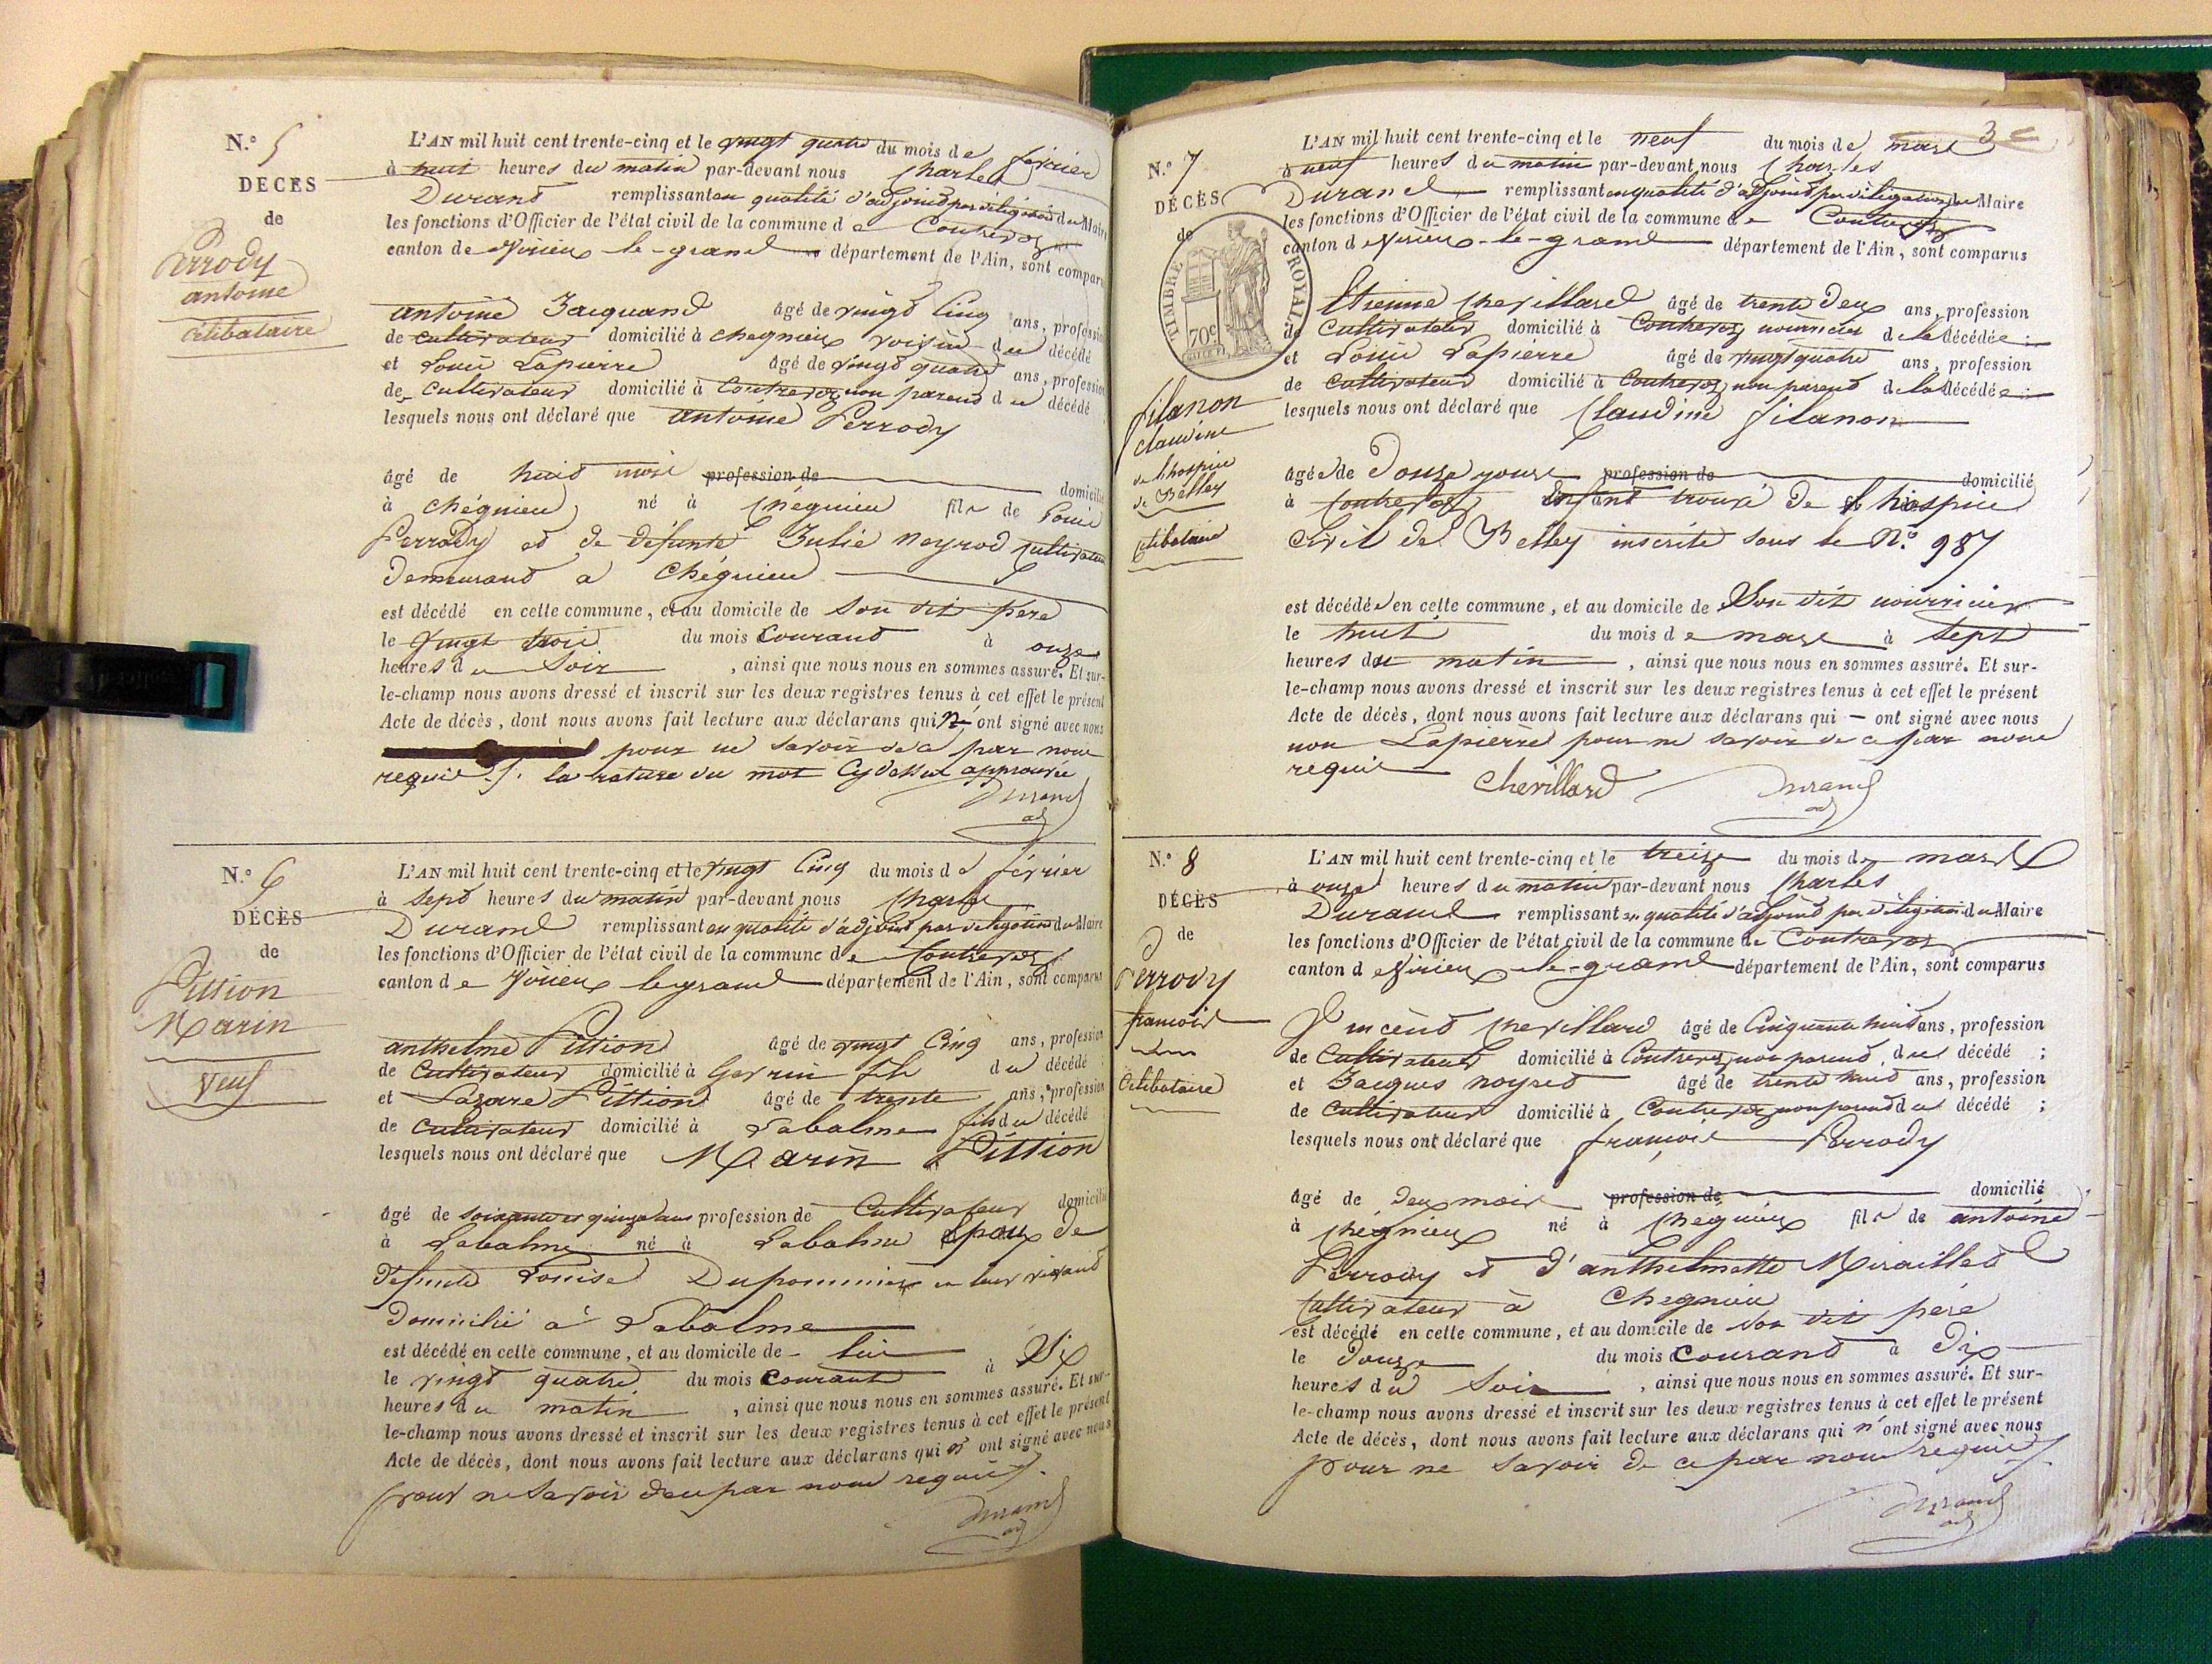 N.° 5
DÉCÈS
de
Perrody
antoine
célibataire
L'AN mil huit cent trente-cinq et le vingt quatre du mois de février
à huit heures du matin par-devant nous Charles
Durand remplissant en qualité d'adjoint par délégation du Maire
les fonctions d'Officier de l'état civil de la commune de Contrevoz
canton de Virieux le-grand département de l'Ain, sont comparus
antoine Jacquand âgé de vingt cinq ans, profession
de cultivateur domicilié à chegnieux voisin du décédé
et Louis Lapierre âgé de vingt quatre ans, profession
de cultivateur domicilié à Contrevoz non parend du décédé
lesquels nous ont déclaré que antoine Perrody
âgé de huit mois profession de domicilié
à chégnieu né à Chégnieu fils de Louis
Perrody et de défunte Julie neyrod cultivateur
demeurand a chégnieu
est décédé en cette commune, et au domicile de son dit père
le vingt trois du mois courand à onze
heures du soir, ainsi que nous nous en sommes assuré. Et sur-
le-champ nous avons dressé et inscrit sur les deux registres tenus à cet effet le présent
Acte de décès, dont nous avons fait lecture aux déclarans qui n' ont signé avec nous
pour ne savoir de ce par nous
requis. la rature du mot Cy dessus approuvée
Durand
adj
N.° 6
DÉCÈS
de
Pittion
Marin
Veuf
L'AN mil huit cent trente-cinq et le vingt cinq du mois de février
à sept heures du matin par-devant nous Charles
Durand remplissant en qualité d'adjoint par délégation du Maire
les fonctions d'Officier de l'état civil de la commune de Contrevoz
canton de Virieux legrand département de l'Ain, sont comparus
anthelme Pittion âgé de vingt cinq ans, profession
de Cultivateur domicilié à fils du décédé
et Lazare Pittion âgé de trente ans, profession
de cultivateur domicilié à Labalme fils du décédé
lesquels nous ont déclaré que Marin Pittion
âgé de soixante et quinze ans profession de Cultivateur domicilié
à Labalme né à Labalme Epoux de
défunte Louise Dupommier en leur vivand
domicilié à Labalme
est décédé en cette commune, et au domicile de lui
le vingt quatre du mois courant à Dix
heures du matin, ainsi que nous nous en sommes assuré. Et sur-
le-champ nous avons dressé et inscrit sur les deux registres tenus à cet effet le présent
Acte de décès, dont nous avons fait lecture aux déclarans qui n' ont signé avec nous
pour ne savoir de ce par nous requis.
Durand
adj
3e
N.° 7
DÉCÈS
de
TIMBRE ROYAL
70c
filanon
claudine
de l'hospice
de Belley
célibataire
L'AN mil huit cent trente-cinq et le neuf du mois de mars
à neuf heures du matin par-devant nous Charles
Durand remplissant en qualité d'adjoint par délégation du Maire
les fonctions d'Officier de l'état civil de la commune de Contrevoz
canton de Virieux-le-grand département de l'Ain, sont comparus
Etienne Chevillard âgé de trente deux ans, profession
de Cultivateur domicilié à Contrevoz nourricier de la décédée
et Louis Lapierre âgé de vingt quatre ans, profession
de Cultivateur domicilié à Contrevoz non parend de la décédée
lesquels nous ont déclaré que Claudine filanon
âgée de Douze jours profession de domicilié
à Contrevoz Enfant trouvé de l'hospice
Civil de Belley inscrite sous le N.° 987
est décédée en cette commune, et au domicile de Son dit nourricier
le huit du mois de mars à sept
heures du matin, ainsi que nous nous en sommes assuré. Et sur-
le-champ nous avons dressé et inscrit sur les deux registres tenus à cet effet le présent
Acte de décès, dont nous avons fait lecture aux déclarans qui — ont signé avec nous
non Lapierre pour ne savoir de ce par nous
requis Chevillard Durand
adj
N.° 8
DÉCÈS
de
Perrody
francois
Célibataire
L'AN mil huit cent trente-cinq et le treize du mois de mars
à onze heures du matin par-devant nous Charles
Durand remplissant en qualité d'adjoint par délégation du Maire
les fonctions d'Officier de l'état civil de la commune de Contrevoz
canton de Virieux-le-grand département de l'Ain, sont comparus
Vincend Chevillard âgé de Cinquante huit ans, profession
de Cultivateur domicilié à Contrevoz non parend du décédé ;
et Jacques noyred âgé de trente huit ans, profession
de Cultivateur domicilié à Contrevoz non parend du décédé ;
lesquels nous ont déclaré que françois Perrody
âgé de deux mois profession de domicilié
à Chégnieux né à Chégnieux fils de antoine
Perrody et d'anthelmette Miraillet
Cultivateur à Chegnieu
est décédé en cette commune, et au domicile de son dit père
le Douze du mois Courand à Dix
heures du Soir, ainsi que nous nous en sommes assuré. Et sur-
le-champ nous avons dressé et inscrit sur les deux registres tenus à cet effet le présent
Acte de décès, dont nous avons fait lecture aux déclarans qui n' ont signé avec nous
pour ne savoir de ce par nous requis.
Durand
adj